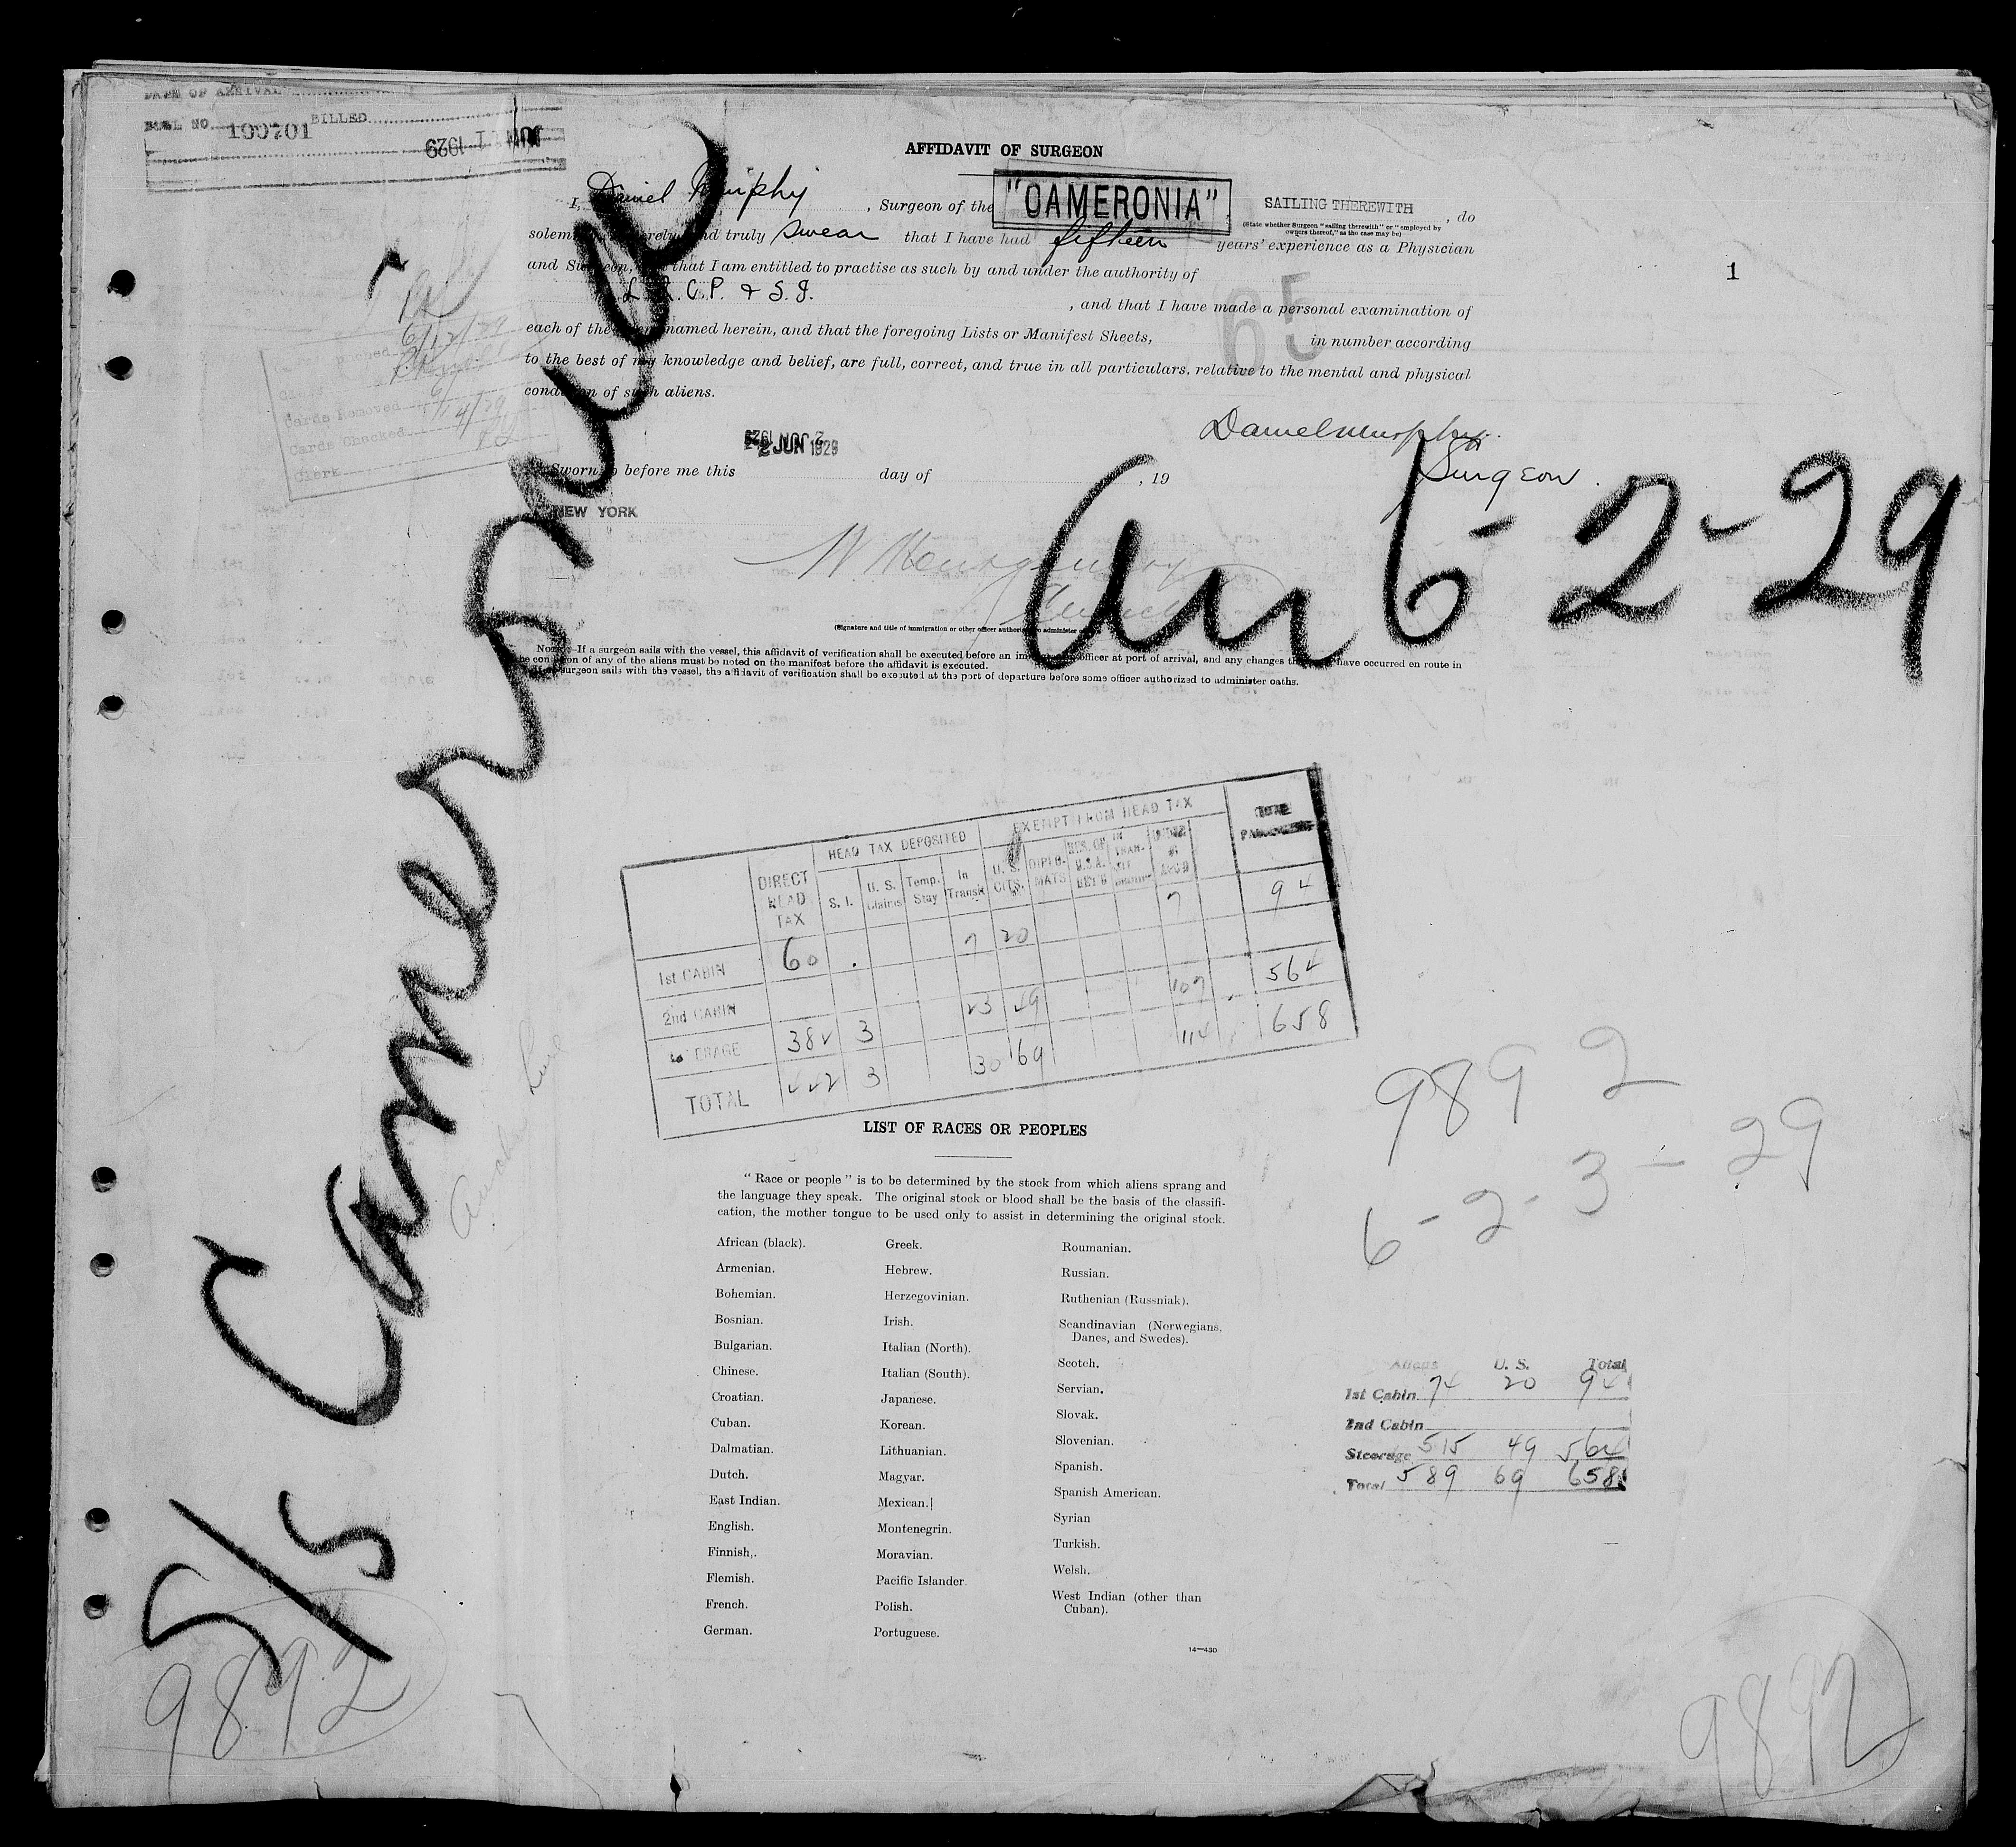 DATE OF ARRIVAL
BILL NO. 100701 BILLED JUN 11 1929
AFFIDAVIT OF SURGEON
I, Daniel Murphy, Surgeon of the "CAMERONIA" SAILING THEREWITH, do
(State whether Surgeon "sailing therewith" or "employed by owners thereof," as the case may be)
solemnly, sincerely, and truly swear that I have had fifteen years' experience as a Physician
and Surgeon, and that I am entitled to practise as such by and under the authority of
L.R.C.P. & S.I., and that I have made a personal examination of
each of the aliens named herein, and that the foregoing Lists or Manifest Sheets, 65 in number according
to the best of my knowledge and belief, are full, correct, and true in all particulars, relative to the mental and physical
condition of such aliens.
1
6/12/29
Cards Removed
Cards Checked 6/14/29
Clerk
Daniel Murphy
Surgeon.
2 JUN 1929
Sworn to before me this day of , 19
NEW YORK
Arr 6-2-29
(Signature and title of immigration or other officer authorized to administer
Note.—If a surgeon sails with the vessel, this affidavit of verification shall be executed before an immigration officer at port of arrival, and any changes that may have occurred en route in
the condition of any of the aliens must be noted on the manifest before the affidavit is executed.
surgeon sails with the vessel, the affidavit of verification shall be executed at the port of departure before some officer authorized to administer oaths.
S/S Cameronia
Anchor Line
DIRECT HEAD TAX HEAD TAX DEPOSITED EXEMPT FROM HEAD TAX TOTAL PASSENGERS
S. I. U. S. Claims Temp. Stay In Transit U. S. CITS. DIPLO-MATS RES. OF U.S.A. RET'G IN TRAN-SIT UNDER 16 ACC'D
1st CABIN 60 7 20 7 94
2nd CABIN
STEERAGE 382 3 23 49 107 564
TOTAL 442 3 30 69 114 658
9892
6-2-3-29
LIST OF RACES OR PEOPLES
"Race or people" is to be determined by the stock from which aliens sprang and
the language they speak. The original stock or blood shall be the basis of the classifi-
cation, the mother tongue to be used only to assist in determining the original stock.
African (black).
Armenian.
Bohemian.
Bosnian.
Bulgarian.
Chinese.
Croatian.
Cuban.
Dalmatian.
Dutch.
East Indian.
English.
Finnish,.
Flemish.
French.
German.
Greek.
Hebrew.
Herzegovinian.
Irish.
Italian (North).
Italian (South).
Japanese.
Korean.
Lithuanian.
Magyar.
Mexican.
Montenegrin.
Moravian.
Pacific Islander
Polish.
Portuguese.
Roumanian.
Russian.
Ruthenian (Russniak).
Scandinavian (Norwegians,
Danes, and Swedes).
Scotch.
Servian.
Slovak.
Slovenian.
Spanish.
Spanish American.
Syrian
Turkish.
Welsh.
West Indian (other than
Cuban).
14—430
Aliens U. S. Total
1st Cabin 74 20 94
2nd Cabin
Steerage 515 49 564
Total 589 69 658
9892
9892